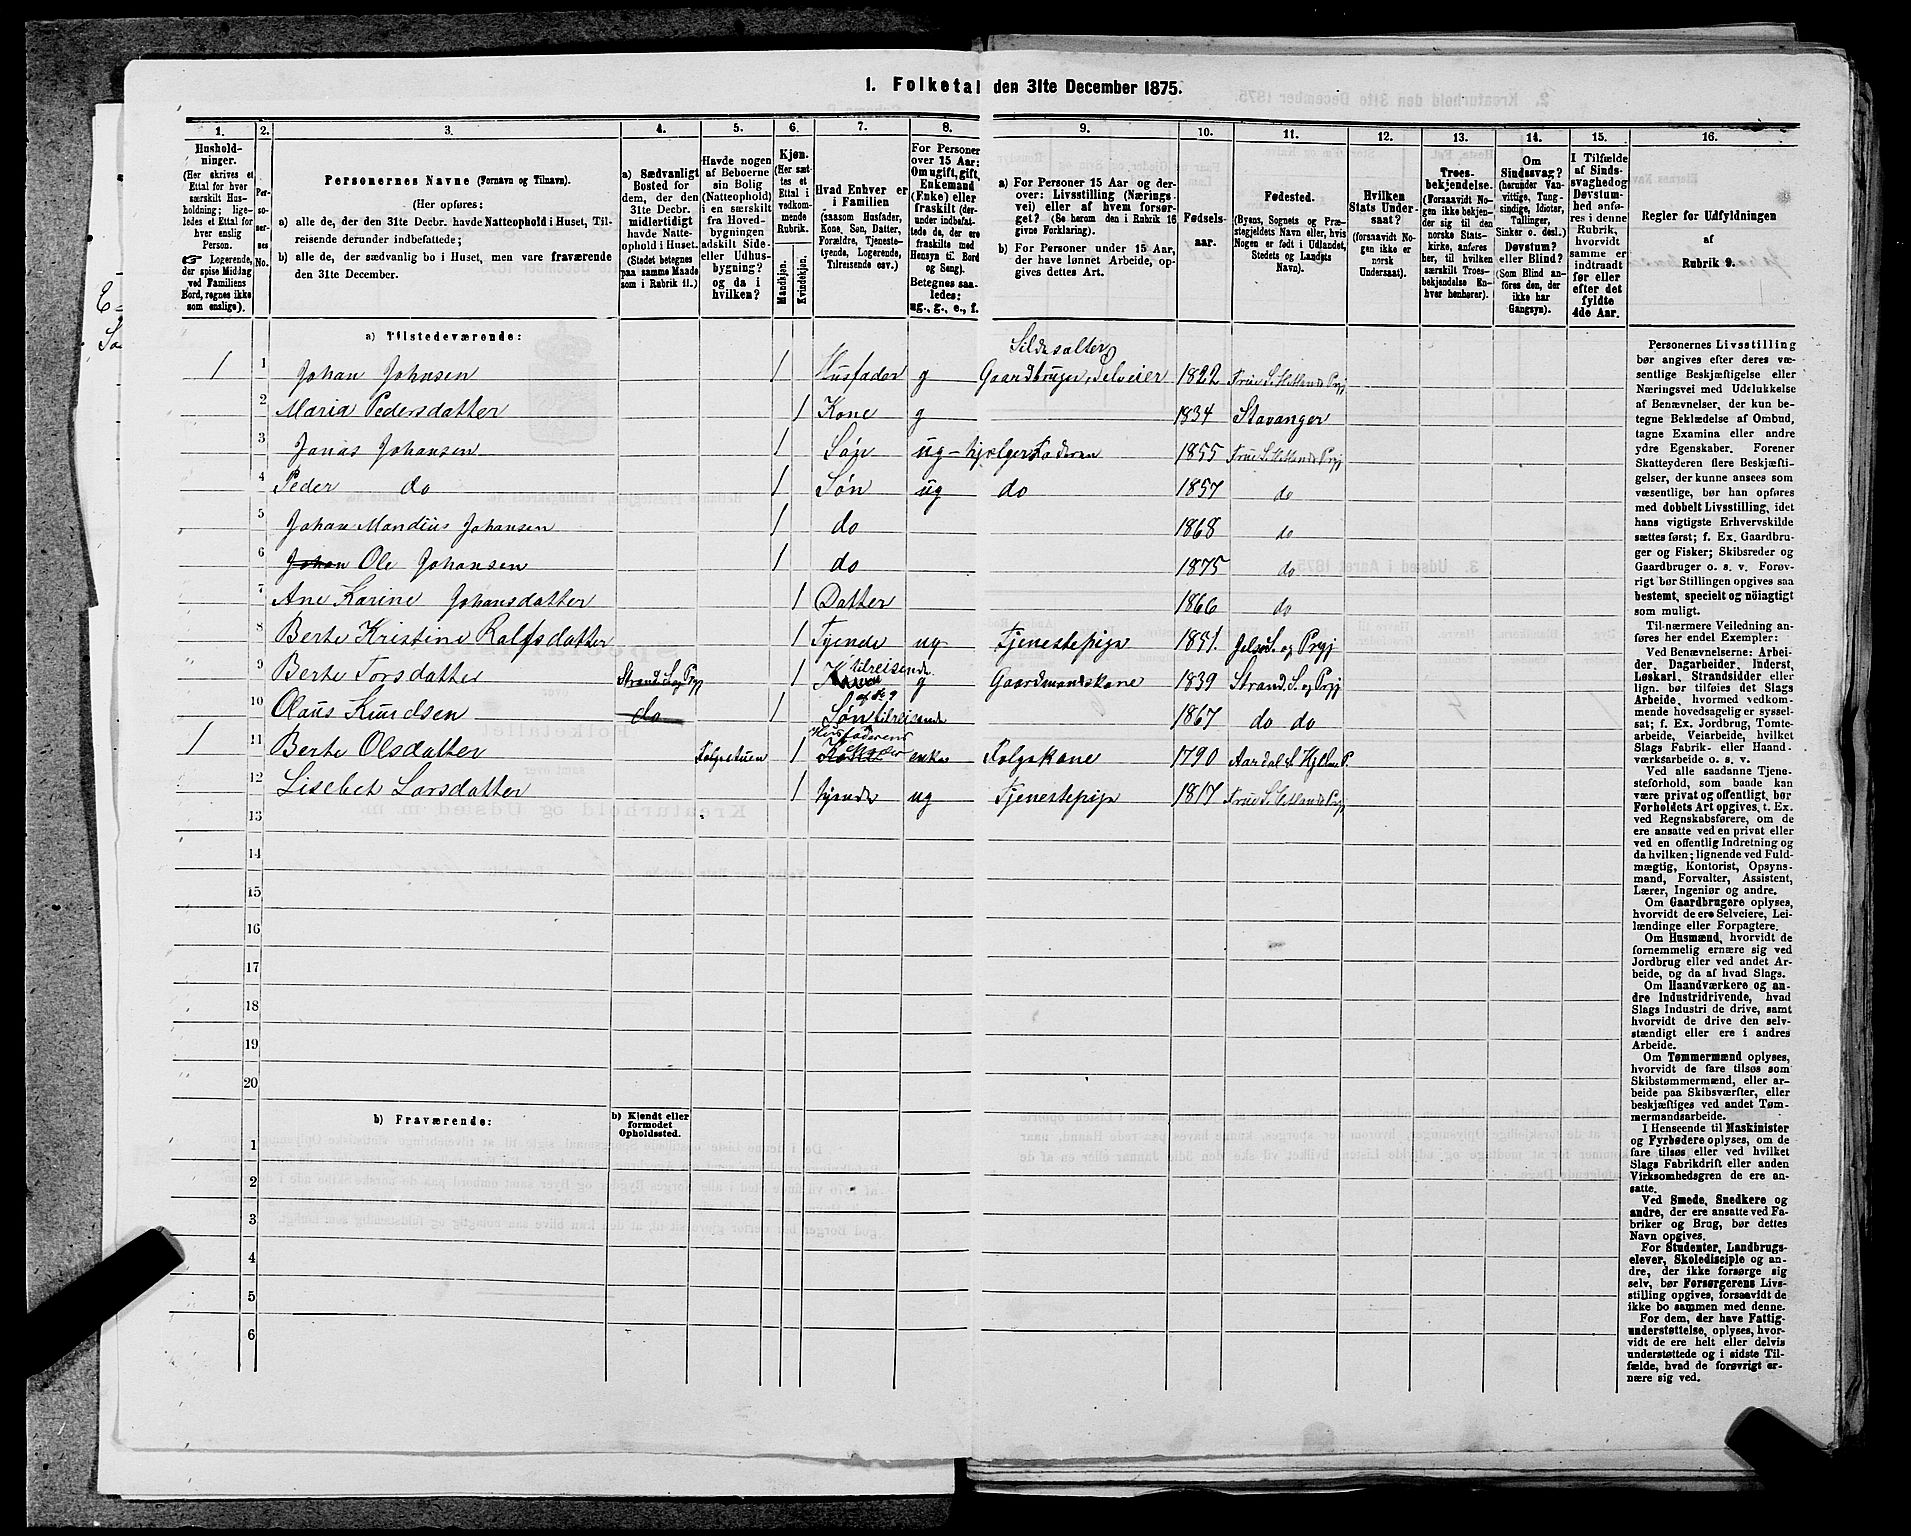 1. Folketal den 31te December 1875.
1. 2. 3. 4. 5. 6. 7. 8. 9. 10. 11. 12. 13. 14. 15. 16.
Hushold-
ninger.
(Her skrives et
Ettal for hver
særskilt Hus-
holdning; lige-
ledes et Ettal for
hver enslig
Person.
☞ Logerende,
der spise Middag
ved Familiens
Bord, regnes ikke
som enslige).
Per-
so-
ner-
nes
No.
Personernes Navne (Fornavn og Tilnavn).
(Her opføres:
a) alle de, der den 31te Decbr. havde Natteophold i Huset, Til-
reisende derunder indbefattede;
b) alle de, der sædvanlig bo i Huset, men vare fraværende
den 31te December.
a) Sædvanligt
Bosted for
dem, der den
31te Decbr.
midlertidigt
havde Natte-
ophold i Huset.
(Stedet betegnes
paa samme Maade
som i Rubrik 11.)
Havde nogen
af Beboerne
sin Bolig
(Natteophold)
i en særskilt
fra Hoved-
bygningen
adskilt Side-
eller Udhus-
bygning?
og da i
hvilken?
Kjøn.
(Her sæt-
tes et
Ettal i
vedkom-
mende
Rubrik.
Mandkjøn.
Kvindekjøn.
Hvad Enhver er
i Familien
(saasom Husfader,
Kone, Søn, Datter,
Forældre, Tjeneste-
tyende, Logerende,
Tilreisende osv.)
For Personer
over 15 Aar:
Om ugift, gift,
Enkemand
(Enke) eller
fraskilt (der-
under indbefat-
tede de, der ere
fraskilte med
Hensyn til Bord
og Seng).
Betegnes saa-
ledes:
ug., g., e., f.
a) For Personer 15 Aar og der-
over: Livsstilling (Nærings-
vei) eller af hvem forsør-
get? (Se herom den i Rubrik 16
givne Forklaring).
b) For Personer under 15 Aar,
der have lønnet Arbeide, op-
gives dettes Art.
Fødsels-
aar.
Fødested.
(Byens, Sognets og Præ-
stegjeldets Navn eller, hvis
Nogen er født i Udlandet,
Stedets og Landets
Navn).
Hvilken
Stats Under-
saat?
(forsaavidt No-
gen ikke er
norsk
Undersaat).
Troes-
bekjendelse.
(Forsaavidt No-
gen ikke bekjen-
der sig til den
norske Stats-
kirke, anføres
her, til hvilken
særskilt Troes-
bekjendelse En-
hver henhører).
Om
Sindssvag?
(herunder Van-
vittige, Tung-
sindige, Idioter,
Tullinger,
Sinker o. desl.)
Døvstum?
eller Blind?
(Som Blind an-
føres den, der
ikke har
Gangsyn).
I Tilfælde
af Sinds-
svaghed og
Døvstum-
hed anfø-
res i denne
Rubrik,
hvorvidt
samme er
indtraadt
før eller
efter det
fyldte
4de Aar.
Regler før Udfyldningen
af
Rubrik 9.
a) Tilstedeværende:
Sildesalter
1 1 Johan Johnsen 1 Husfader g Gaardbruger, Selveier 1822 Frue S. Hetlands Prgj
2 Maria Pedersdatter 1 Kone g 1834 Stavanger
3 Jonas Johansen 1 Søn ug hjælper Faderen 1855 Frue S. Hetlands Prgj
4 Peder do 1 Søn ug do 1857 do
5 Johan Mandius Johansen 1 do 1868 do
6 Johan Ole Johansen 1 do 1875 do
7 Ane Karine Johansdatter 1 Datter 1866 do
8 Berte Kristine Ralfsdatter 1 Tyende ug Tjenestepige 1851. Jelse S. og Prgj
9 Berte Torsdatter Strand S. og Prgj 1 tilreisende g Gaardmandskone 1839 Strand S. og Prgj
10 Olaus Knudsen do 1 Søn af No 9 tilreisende 1867 do do
1 11 Berte Olsdatter Folgestuen 1 Husfaderens Moder enke Folgekone 1790 Aardal S. Hjelme P.
12 Lisebet Larsdatter 1 tyende ug Tjenestepige 1817 Frue S. Hetlands Prgj
13
14
15
16
17
18
19
20
b) Fraværende:
b) Kjendt eller
formodet
Opholdssted.
1
2
3
4
5
6
Personernes Livsstilling
bør angives efter deres væ-
sentlige Beskjæftigelse eller
Næringsvei med Udelukkelse
af Benævnelser, der kun be-
tegne Beklædelse af Ombud,
tagne Examina eller andre
ydre Egenskaber. Forener
Skatteyderen flere Beskjæfti-
gelser, der kunne ansees som
væsentlige, bør han opføres
med dobbelt Livsstilling, idet
hans vigtigste Erhvervskilde
sættes først; f. Ex. Gaardbru-
ger og Fisker; Skibsreder og
Gaardbruger o. s. v. Forøv-
rigt bør Stillingen opgives saa
bestemt, specielt og nöiagtigt
som muligt.
Til nærmere Veiledning an-
føres her endel Exempler:
Ved Benævnelserne: Arbei-
der, Dagarbeider, Inderst,
Løskarl, Strandsidder eller
lign. bør tilføies det Slags
Arbeide, hvormed vedkom-
mende hovedsagelig er syssel-
sat; f. Ex. Jordbrug, Tomte-
arbeide, Veiarbeide, hvilket
Slags Fabrik- eller Haand-
værksarbeide o. s. v.
Ved alle saadanne Tjene-
steforhold, som baade kan
være privat og offentligt, bør
Forholdets Art opgives, t. Ex.
ved Regnskabsførere, om de
ere ansatte ved en privat eller
ved en offentlig Indretning og
da hvilken; lignende ved Fuld-
mægtig, Kontorist, Opsyns-
mand, Forvalter, Assistent,
Lærer, Ingeniør og andre.
Om Gaardbrugere oplyses,
hvorvidt de ere Selveiere, Lei-
lændinge eller Forpagtere.
Om Husmænd, hvorvidt de
fornemmelig ernære sig ved
Jordbrug eller ved andet Ar-
beide, og da af hvad Slags.
Om Haandværkere og an-
dre Industridrivende, hvad
Slags Industri de drive, samt
hvorvidt de drive den selv-
stændigt eller ere i andres
Arbeide.
Om Tømmermænd oplyses,
hvorvidt de fare tilsøs som
Skibstømmermænd, eller ar-
beide paa Skibsværfter, eller
beskjæftiges ved andet Tøm-
mermandsarbeide.
I Henseende til Maskinister
og Fyrbødere oplyses, om de
fare tilsøs eller ved hvilket
Slags Fabrikdrift eller anden
Virksomhedsgren de ere an-
satte.
Ved Smede, Snedkere og
andre, der ere ansatte ved Fa-
briker og Brug, bør dettes
Navn opgives.
For Studenter, Landbrugs-
elever, Skoledisciple og an-
dre, der ikke forsørge sig
selv, bør Forsørgerens Livs-
stilling opgives, forsaavidt de
ikke bo sammen med denne.
For dem, der have Fattig-
understøttelse, oplyses, hvor-
vidt de ere helt eller delvis
understøttede og i sidste Til-
fælde, hvad de forøvrigt er-
nære sig ved.